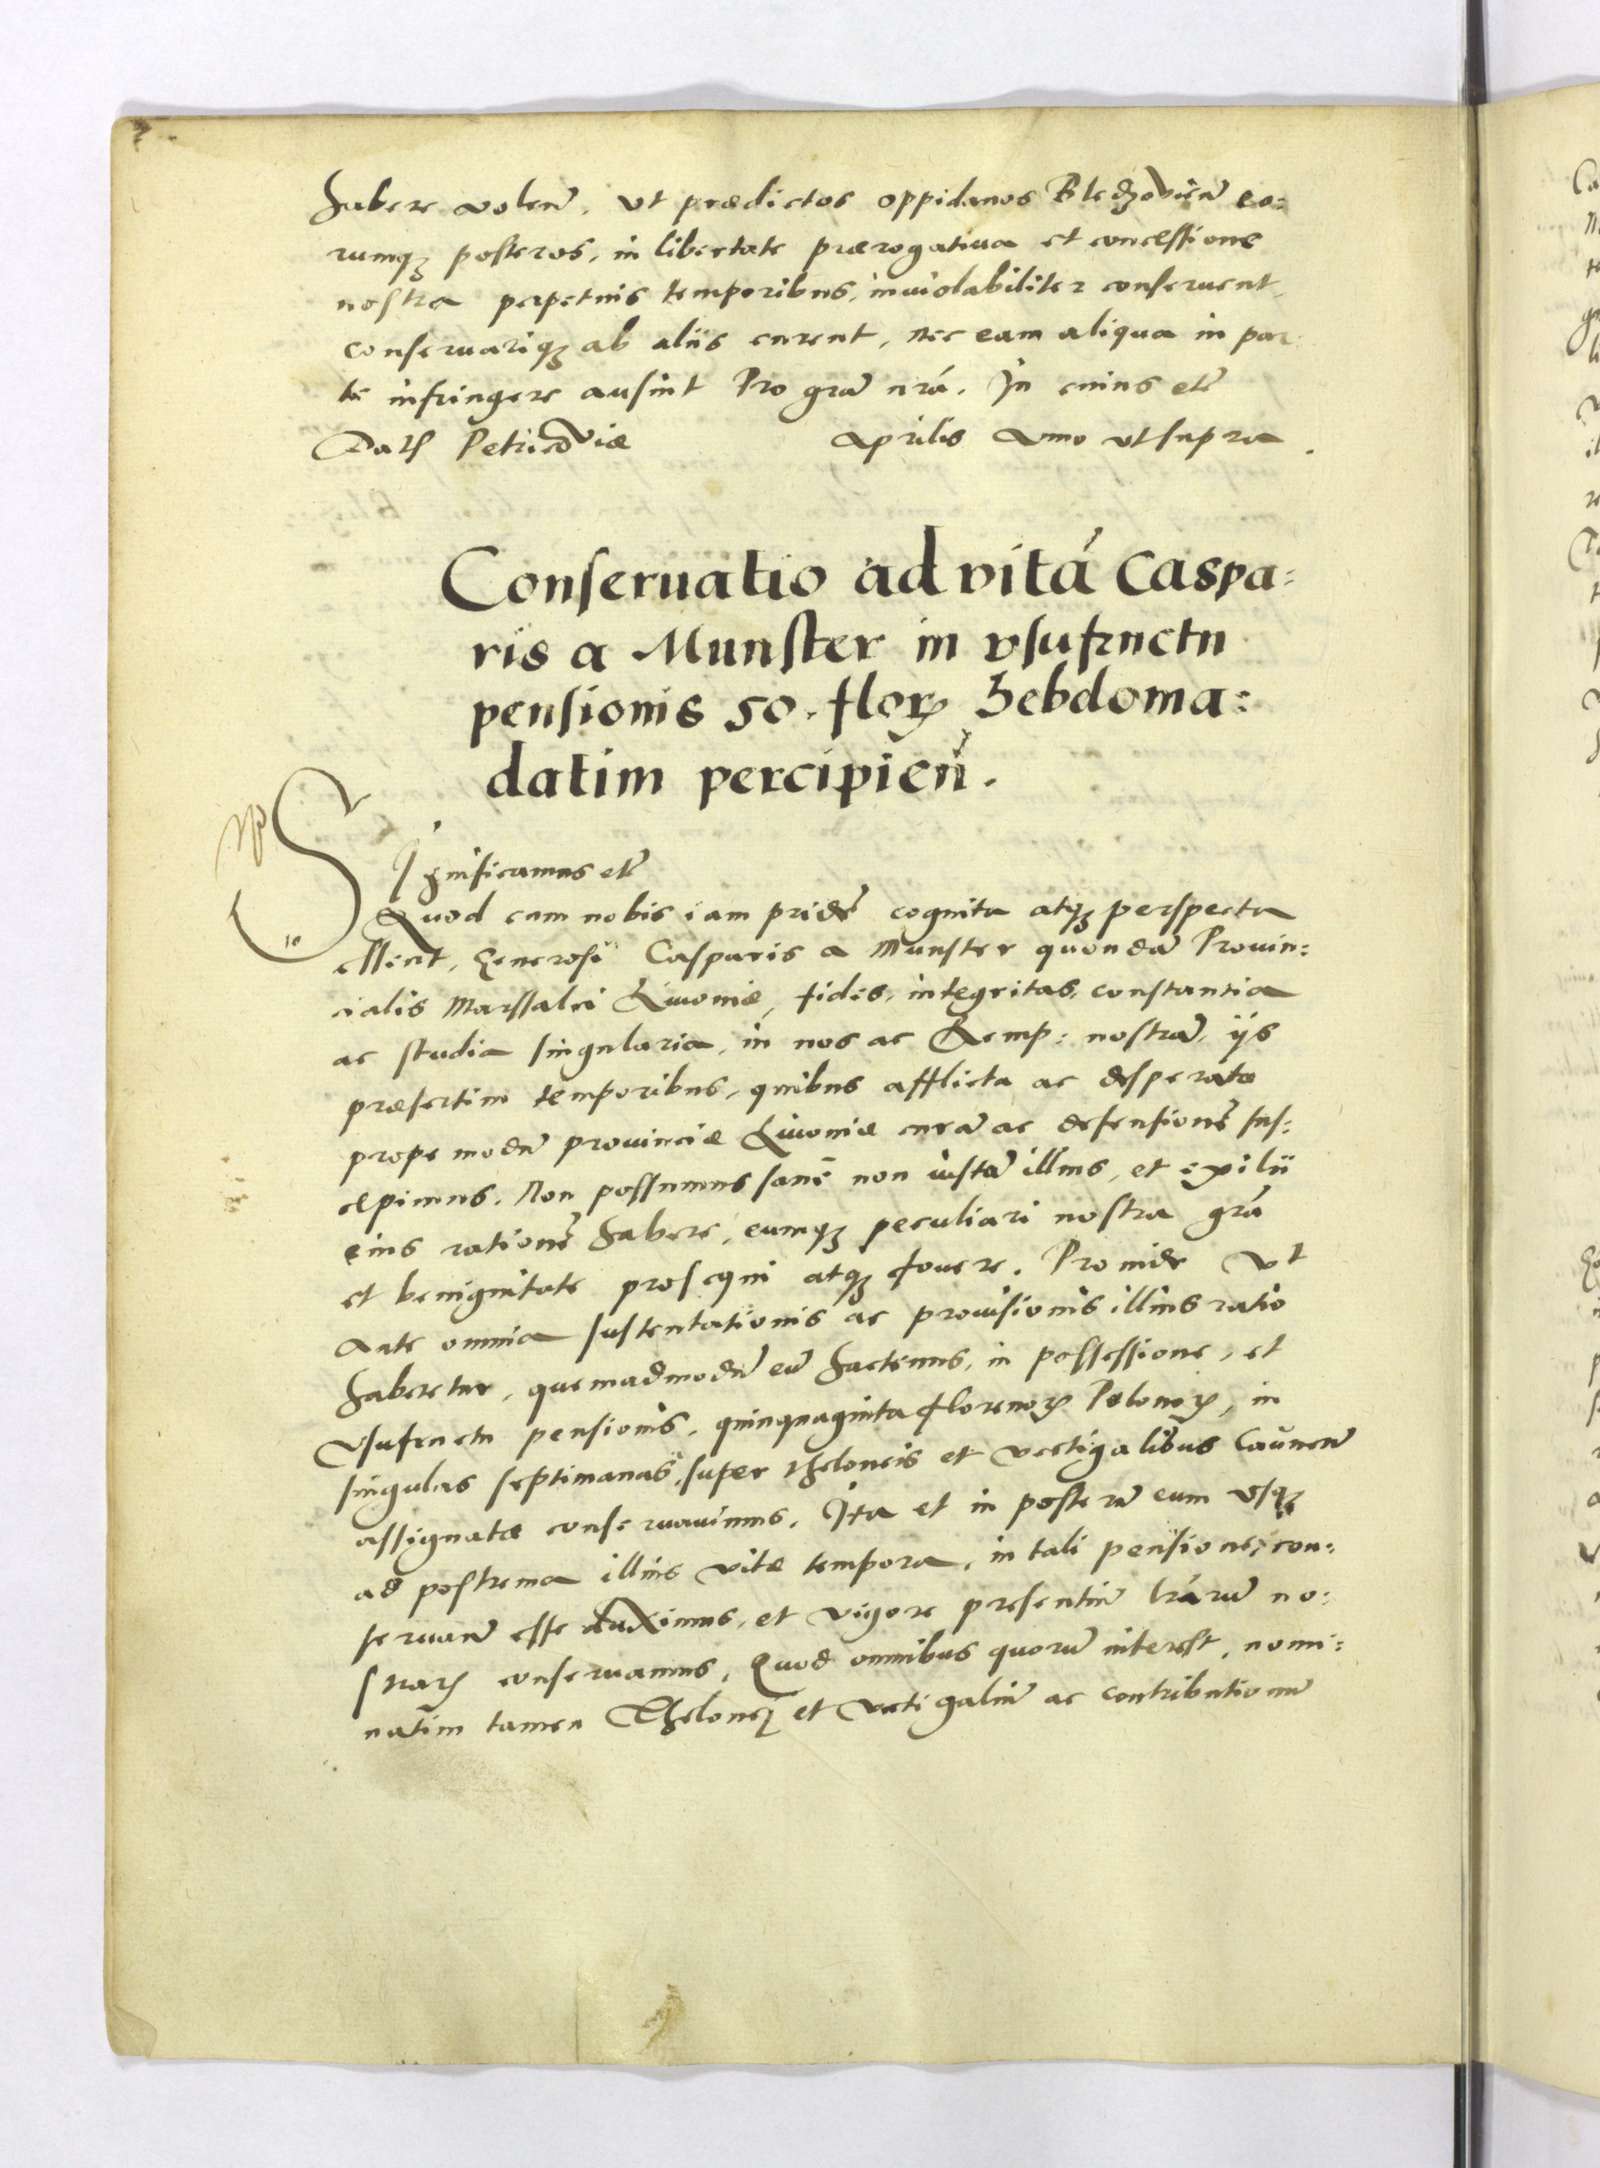 habere volen̄. ut prædictos oppidanos Bledzovien̄ eo:
rumq₃ posteros, in libertate prærogativa et concessione
nostra perpetuis temporibus, inviolabiliter conservent,
conservariq₃ ab aliis curent, nec eam aliqua in par:
te infringere ausint Pro grā nrā. In cuius etc̄
Datꝭ Petricoviæ Aprilis Anno ut supra.
Conseruatio ad vitā Caspa:
ris a Munster in vsufructu
pensionis 50. florꝝ hebdoma:
datim percipien̄.
Significamus etc̄
Quod cum nobis iam pridē cognita atq₃ perspecta
essent, Generosi Casparis a Munster quondā Provin:
cialis Marssalci Livoniæ, fides, integritas, constantia
ac studia singularia, in nos ac Remp: nostrā, iis
præsertim temporibus, quibus afflicta ac desperata
propemodū provinciæ Livoniæ curā ac defensionē sus:
cepimus. Non possumus sanè non iustā illius, et exilii
eius rationē habere, eumq₃ peculiari nostra grā
et benignitate prosequi atq₃ fovere. Proinde Ut
Ante omnia sustentationis ac provisionis illius ratio
haberetur, quemadmodū eū hactenus, in possessione, et
Vsufructu pensionis, quinquaginta florenoꝝ Polonoꝝ, in
singulas septimanas, super theloneis et vectigalibus Caunen̄
assignatæ conservavimus. Ita et in posterū eum vsq₃
ad postrema illius vitæ tempora, in tali pensione, con:
servan̄ esse duximus, et vigore presentiū lrārū no:
strarꝭ conservamus. Quod omnibus quorū interest, nomi:
natim tamen Theloneoꝝ et vectigaliū ac contributionū